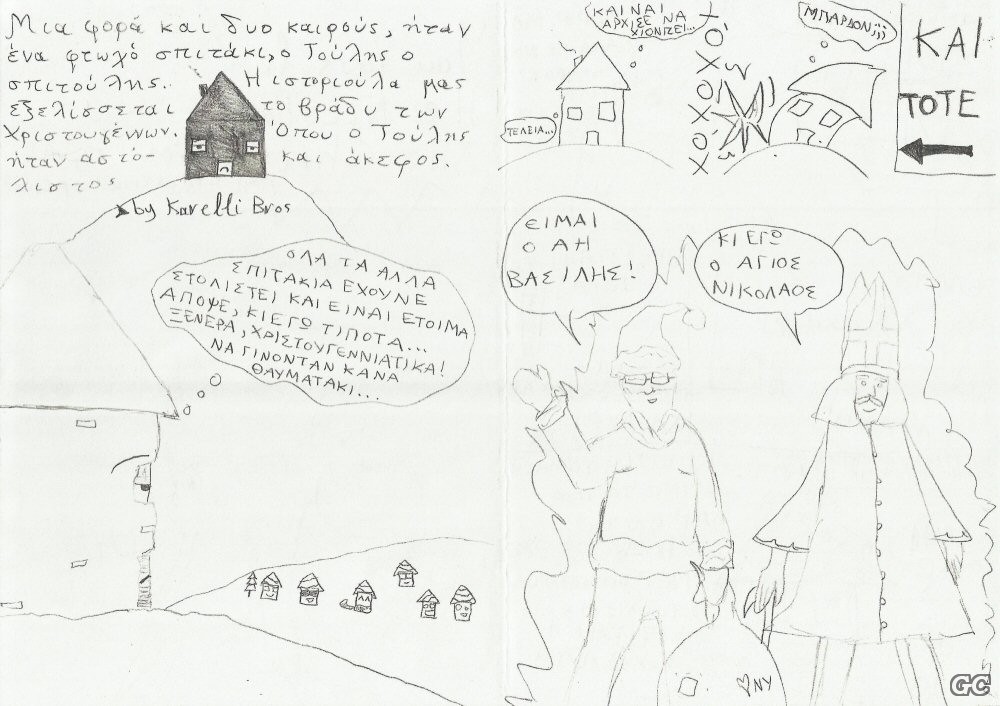 Μια φορά και δυο καιρούς, ήταν
ένα φτωχό σπιτάκι, ο Τούλης ο
σπιτούλης. Η ιστοριούλα μας
εξελίσσεται το βράδυ των
Χριστουγέννων. Όπου ο Τούλης
ήταν αστό- και άκεφος.
λιστος
by Karelli Bros
ΟΛΑ ΤΑ ΑΛΛΑ
ΣΠΙΤΑΚΙΑ ΕΧΟΥΝΕ
ΣΤΟΛΙΣΤΕΙ ΚΑΙ ΕΙΝΑΙ ΕΤΟΙΜΑ
ΑΠΟΨΕ, ΚΙ ΕΓΩ ΤΙΠΟΤΑ...
ΞΕΝΕΡΑ, ΧΡΙΣΤΟΥΓΕΝΝΙΑΤΙΚΑ!
ΝΑ ΓΙΝΟΝΤΑΝ ΚΑΝΑ
ΘΑΥΜΑΤΑΚΙ...
ΚΑΙ ΝΑΙ
ΑΡΧΙΣΕ ΝΑ
ΧΙΟΝΙΖΕΙ...
ΤΕΛΕΙΑ...
ΧΟΧΟΧΟΧΟ
ΜΠΑΡΔΟΝ;;;
ΚΑΙ
ΤΟΤΕ
ΕΙΜΑΙ
Ο ΑΗ
ΒΑΣΙΛΗΣ!
ΚΙ ΕΓΩ
Ο ΑΓΙΟΣ
ΝΙΚΟΛΑΟΣ
♡NY
GC